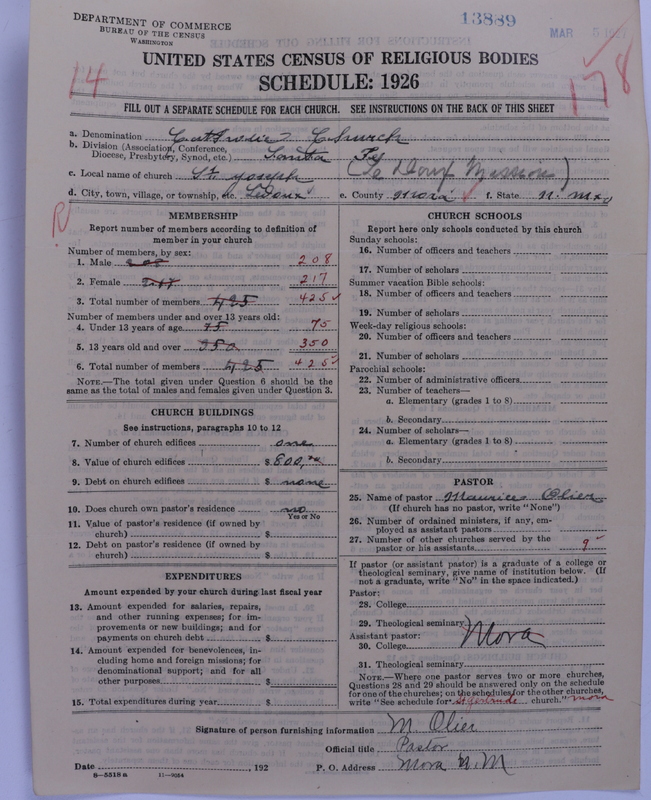 DEPARTMENT OF COMMERCE
BUREAU OF THE CENSUS
WASHINGTON
13889
MAR 5
UNITED STATES CENSUS OF RELIGIOUS BODIES
SCHEDULE: 1926
14
178
FILL OUT A SEPARATE SCHEDULE FOR EACH CHURCH. SEE INSTRUCTIONS ON THE BACK OF THIS SHEET
a. Denomination Catholic Church
b. Division (Association, Conference, Diocese, Presbytery, Synod, etc.) Santa Fe
c. Local name of church St. Joseph (Le Doux Mission)
d. City, town, village, or township, etc. Ledoux e. County Mora f. State N. Mex
R
MEMBERSHIP
Report number of members according to definition of member in your church
Number of members, by sex:
1. Male 208 208
2. Female 217 217
3. Total number of members 425 425
Number of members under and over 13 years old:
4. Under 13 years of age 75 75
5. 13 years old and over 350 350
6. Total number of members 425 425
NOTE.—The total given under Question 6 should be the same as the total of males and females given under Question 3.
CHURCH BUILDINGS
See instructions, paragraphs 10 to 12
7. Number of church edifices one
8. Value of church edifices $800.00
9. Debt on church edifices $ none
10. Does church own pastor's residence no
Yes or No
11. Value of pastor's residence (if owned by church) $
12. Debt on pastor's residence (if owned by church) $
EXPENDITURES
Amount expended by your church during last fiscal year
13. Amount expended for salaries, repairs, and other running expenses; for improvements or new buildings; and for payments on church debt $
14. Amount expended for benevolences, including home and foreign missions; for denominational support; and for all other purposes $
15. Total expenditures during year $
CHURCH SCHOOLS
Report here only schools conducted by this church
Sunday schools:
16. Number of officers and teachers
17. Number of scholars
Summer vacation Bible schools:
18. Number of officers and teachers
19. Number of scholars
Week-day religious schools:
20. Number of officers and teachers
21. Number of scholars
Parochial schools:
22. Number of administrative officers
23. Number of teachers—
a. Elementary (grades 1 to 8)
b. Secondary
24. Number of scholars—
a. Elementary (grades 1 to 8)
b. Secondary
PASTOR
25. Name of pastor Maurice Olier
(If church has no pastor, write "None")
26. Number of ordained ministers, if any, employed as assistant pastors
27. Number of other churches served by the pastor or his assistants 9
If pastor (or assistant pastor) is a graduate of a college or theological seminary, give name of institution below. (If not a graduate, write "No" in the space indicated.)
Pastor:
28. College
29. Theological seminary
Assistant pastor: Mora
30. College
31. Theological seminary
NOTE.—Where one pastor serves two or more churches, Questions 28 and 29 should be answered only on the schedule for one of the churches; on the schedules for the other churches, write "See schedule for St Gertrude church." Mora
Signature of person furnishing information M. Olier
Official title Pastor
Date , 192 P. O. Address Mora N. M
8—5518 a 11—9064